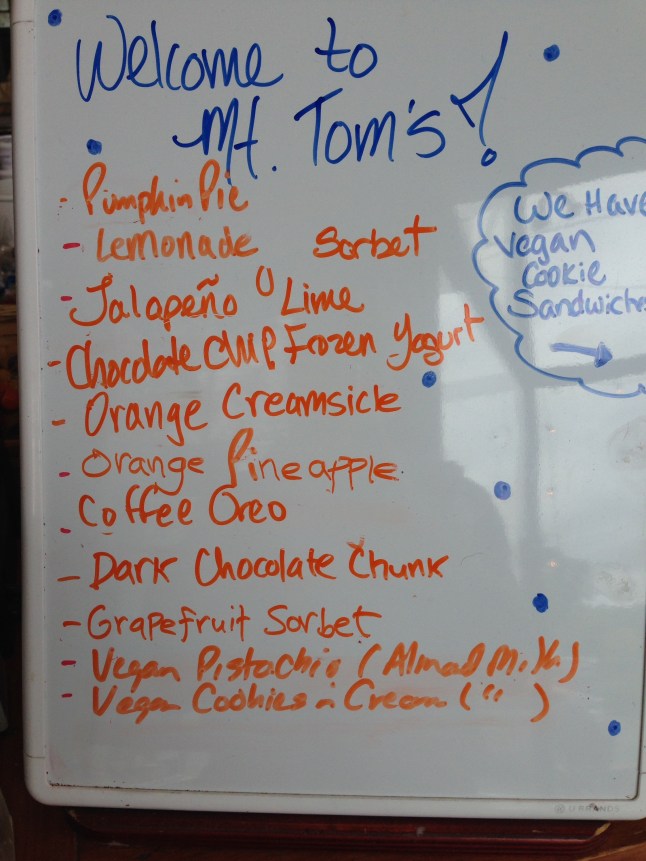 Welcome to
Mt. Tom's!
- Pumpkin Pie
- Lemonade Sorbet
- Jalapeño Lime
- Chocolate Chip Frozen Yogurt
- Orange Creamsicle
- Orange Pineapple
- Coffee Oreo
- Dark Chocolate Chunk
- Grapefruit Sorbet
- Vegan Pistachio (Almond Milk)
- Vegan Cookies n Cream (" )
We Have
Vegan
Cookie
Sandwiches
U BRANDS